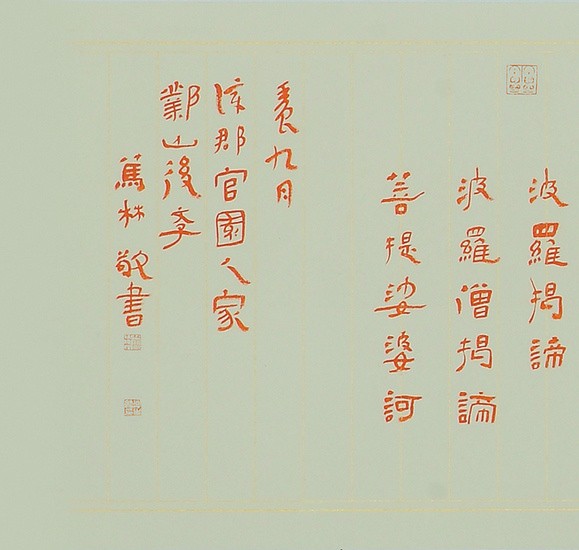 波羅揭諦
波羅僧揭諦
菩提娑婆訶
九月
郡官園人家
鄴山後季
篤林敬書